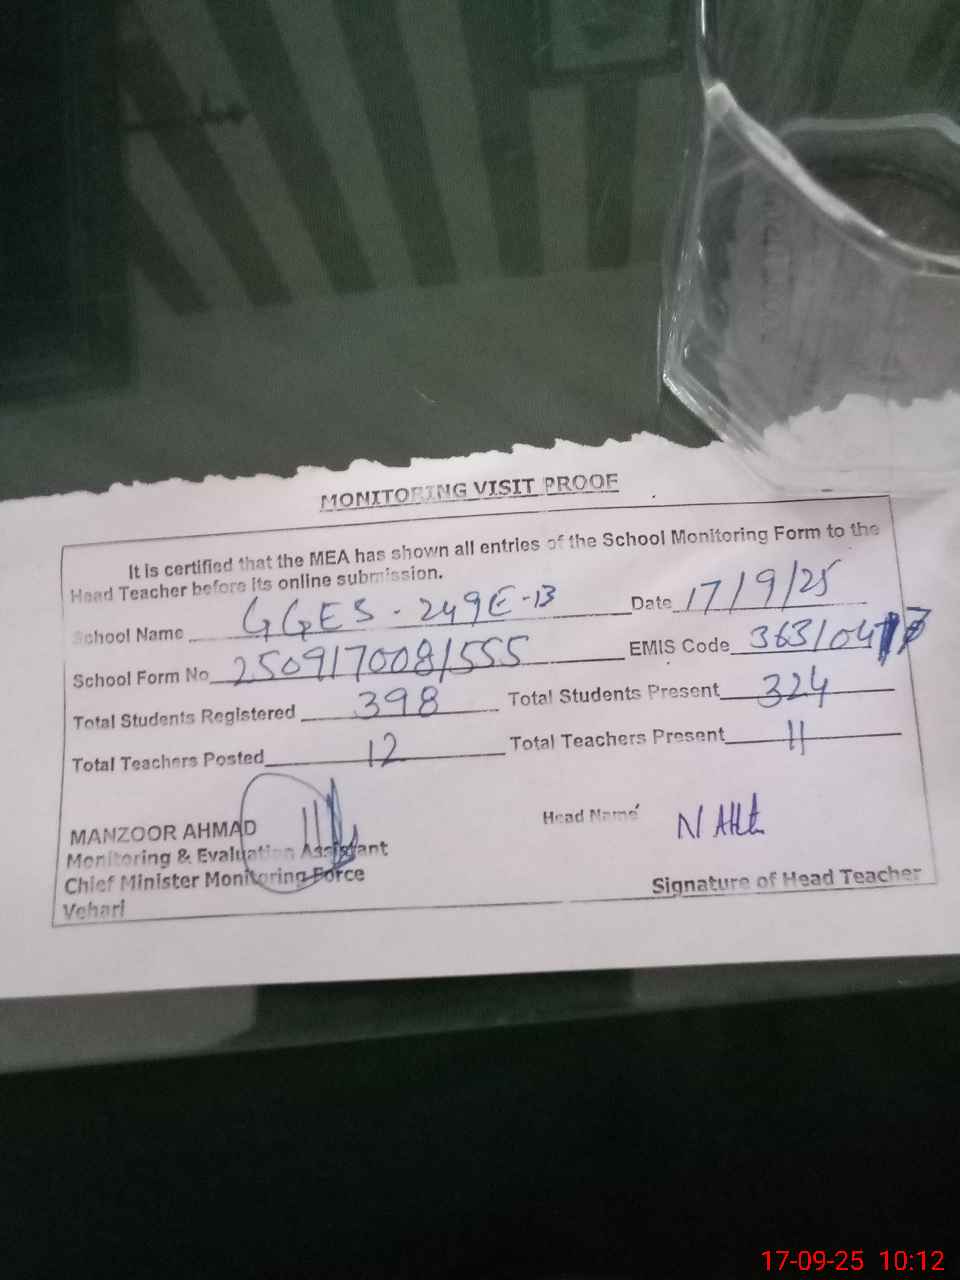 MONITORING VISIT PROOF
It is certified that the MEA has shown all entries of the School Monitoring Form to the
Head Teacher before its online submission.
School Name GGES - 249E-B Date 17/9/25
School Form No 2509170081555 EMIS Code
Total Students Registered 398 Total Students Present 324
Total Teachers Posted 12 Total Teachers Present 11
MANZOOR AHMAD Head Name
Monitoring & Evaluation Assistant
Chief Minister Monitoring Force
Vehari Signature of Head Teacher
17-09-25 10:12